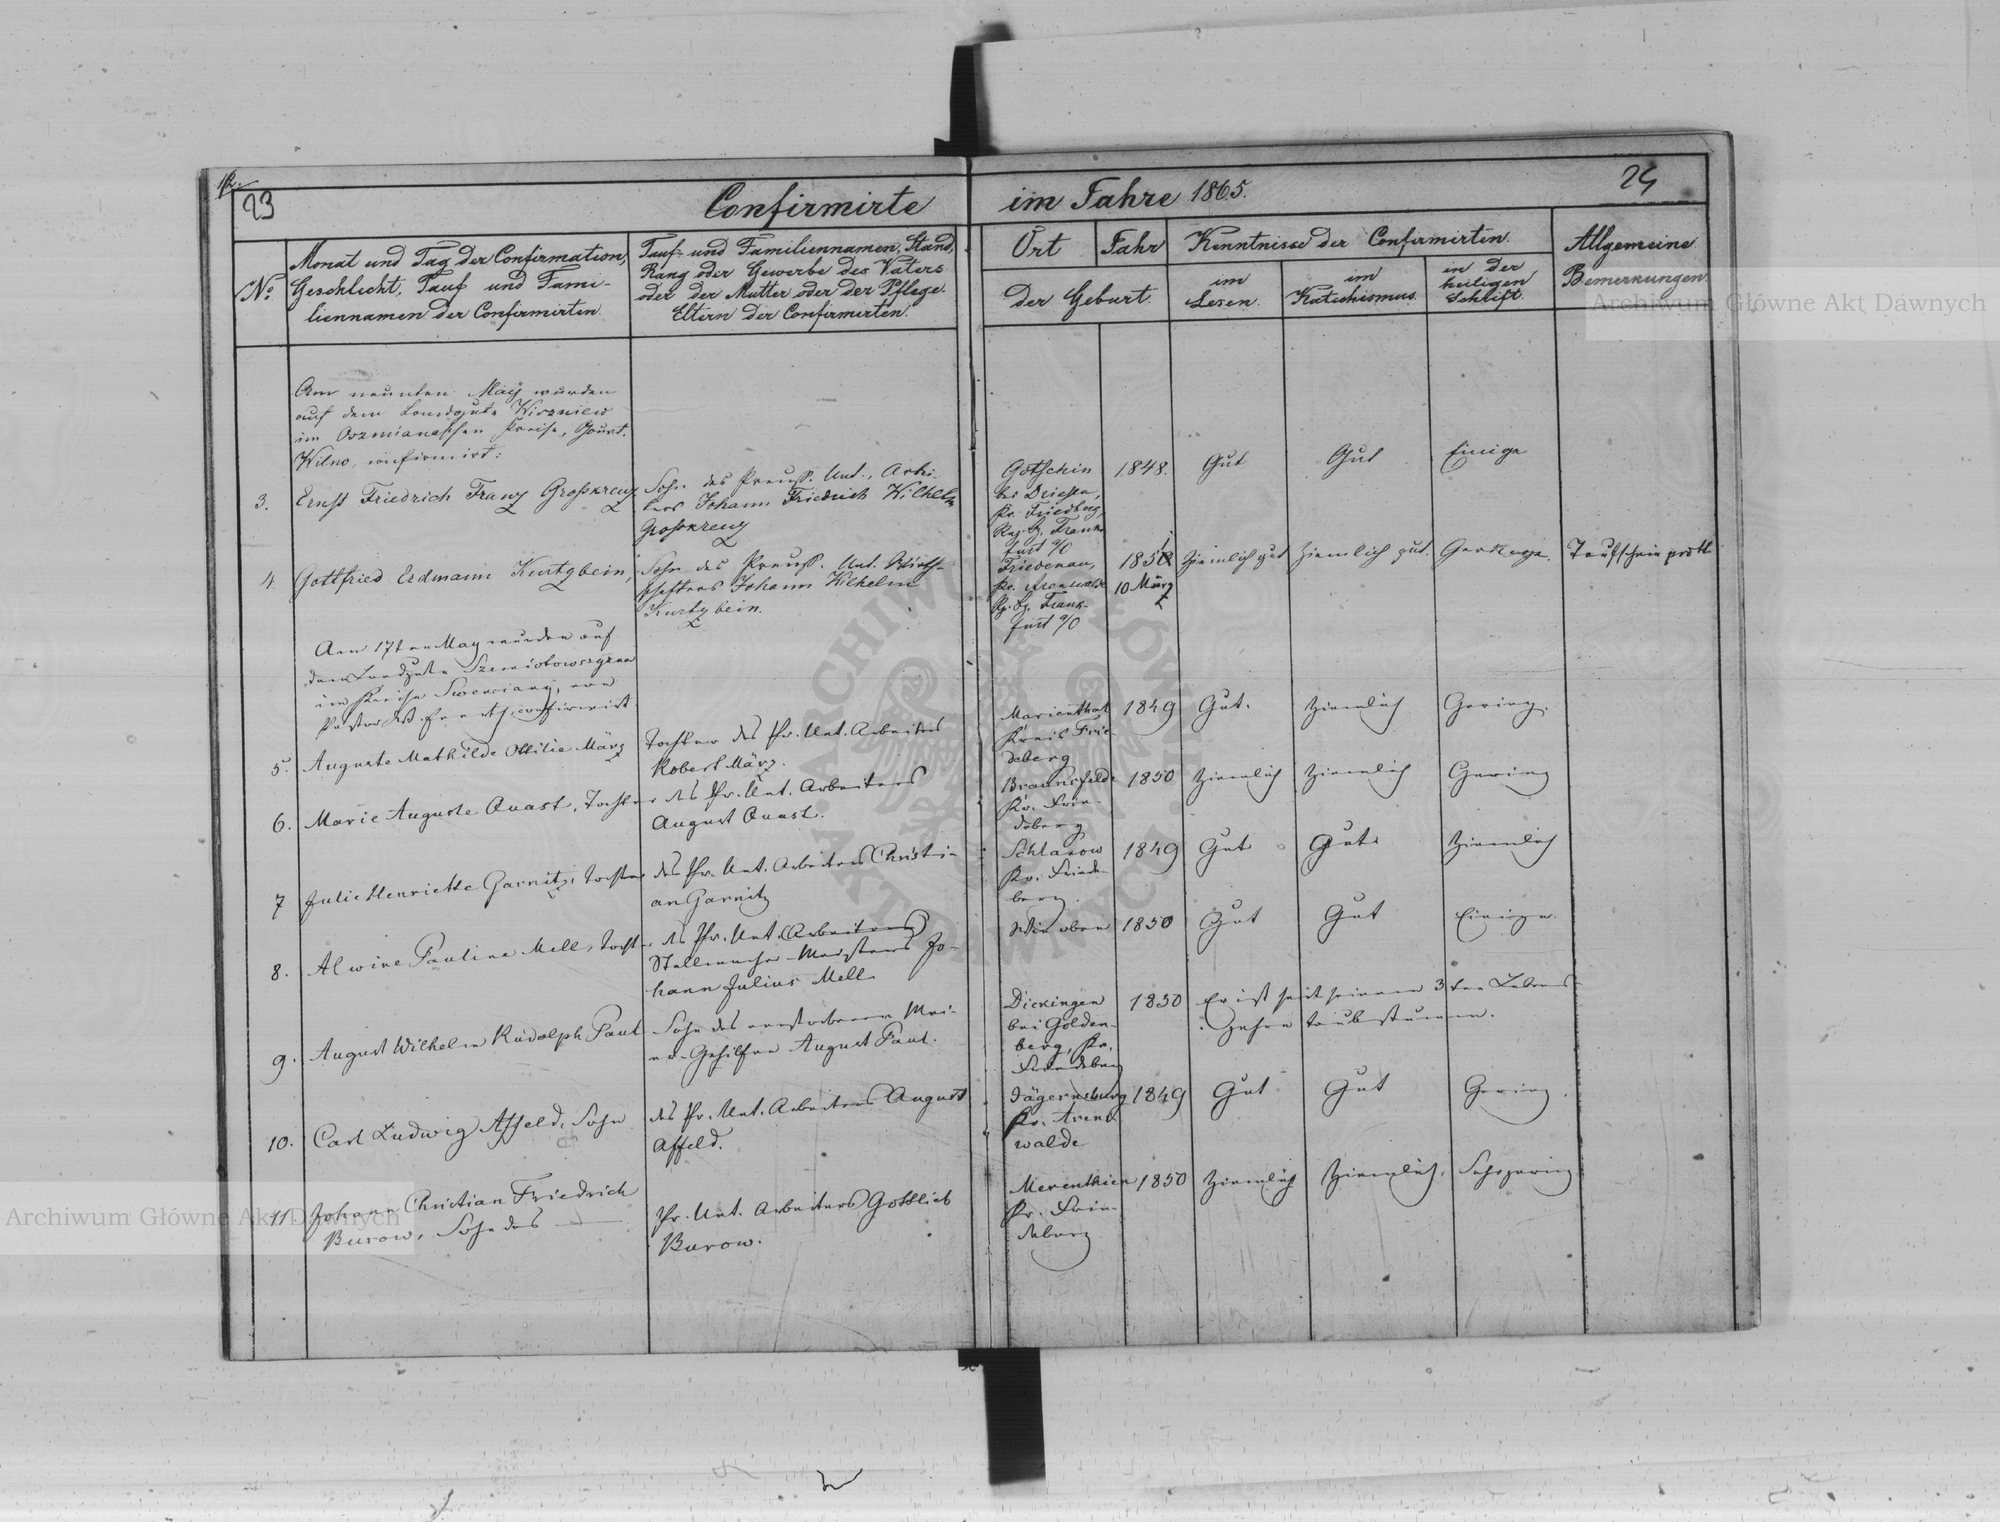 23
Confirmirte im Jahre 1865.
24
No
Monat und Tag der Confirmation,
Geschlecht, Tauf und Fami-
liennamen der Confirmirten
Tauf- und Familiennamen, Stand,
Rang oder Gewerbe des Vaters
oder der Mutter oder der Pflege-
Eltern der Confirmirten.
Ort Jahr
der Geburt.
Kenntnisse der Confirmirten.
im
Lesen.
im
Katechismus.
in der
heiligen
Schrift.
Allgemeine
Bemerkungen.
Archiwum Główne Akt Dawnych
Am neunten May wurden
auf dem Landgute Wiszniew
im Oszmianaschen Kreise, Gouvt.
Wilno, confirmirt:
3. Ernst Friedrich Franz Groskreuz
Sohn des Preuß. Unt., Arbei-
ters Johann Friedrich Wilhelm
Groskreuz
Gottschin
bei Driesen,
Kr. Friedberg,
Reg. Bz. Frank-
furt a/O
1848. Gut Gut Einige
4. Gottfried Erdmann Kurtzbein,
Sohn des Preuß. Unt.
Johann Wilhelm
Kurtzbein.
Friedenau,
Kr. Arenswalde
Rg. Bz. Frank-
furt a/O
1851
10 März
Ziemlich gut Ziemlich gut. Geringe. Taufschein prod.
Am 17ten May wurden auf
dem Landgute
im Kreise Swenciany, vom
Pastor confirmirt
5. Auguste Mathilde Ottilie März
Tochter des Pr. Unt. Arbeiters
Robert März.
Marienthal
Kreis Frie-
deberg
1849 Gut. Ziemlich Gering.
6. Marie Auguste Quast, Tochter des Pr. Unt. Arbeiters
August Quast.
Braunsfelde
Kr. Frie-
deberg
1850 Ziemlich Ziemlich Gering
7 Julie Henriette Garnitz, Tochter des Pr. Unt. Arbeiters Christi-
an Garnitz
Schlanow
Kr. Friede-
berg.
1849 Gut Gut Ziemlich
8. Alwine Pauline Mell, Tochter des Pr. Unt. (Arbeiters)
Stellmacher-Meisters Jo-
hann Julius Mell
Wie oben 1850 Gut Gut Einige.
9. August Wilhelm Rudolph Paul
Sohn des verstorbenen Mei-
er-Gehilfen August Paul.
Dickingen
bei Golden-
berg, Kr.
Friedeberg
1850 Er ist seit seinem 3ten Lebens-
jahre taubstumm.
10. Carl Ludwig Affeld, Sohn des Pr. Unt. Arbeiters August
Affeld.
Jägernsburg
Kr. Arens-
walde
1849 Gut Gut Gering.
11. Johann Christian Friedrich
Burow, Sohn des
Pr. Unt. Arbeiters Gottlieb
Burow.
Merenthien
Kr. Frie-
deberg
1850 Ziemlich Ziemlich. Sehr gering
Archiwum Główne Akt Dawnych
ARCHIWUM GŁÓWNE AKT DAWNYCH